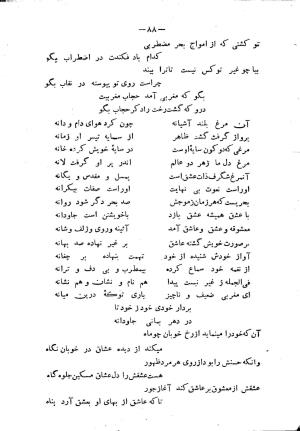 —۸۸—
تو کشتی که از امواج بحر مضطربی
کدام باد فکندت در اضطراب بگو
بیا چو غیر تو کس نیست تا ترا بیند
چراست روی تو پیوسته در نقاب بگو
بگو که مغربی آمد حجاب مغربیت
درو که گشت رخت را دگر حجاب بگو
آن مرغ بلند آشیانه
چون کرد هوای دام و دانه
پرواز گرفت گشت ظاهر
از سمایه تیسر او زمانه
مرغی که دو کون سایه اوست
در سایهٔ خویش کرده خانه
مرغ دل ما ز هر دو عالم
اندر پر او گرفت لانه
آنمرغ شگرف ذات عشق است
بیمثل و مقدس و یگانه
اوراست نعوت بی نهایت
اوراست صفات بیکرانه
بحریست که هر زمان ز موجش
صد بحر دگر شود روانه
با عشق همیشه عشق بازد
با خویشتن است جاودانه
معشوقه و عشق و عاشق آمد
آئینه و روی و زلف و شانه
بر صورت خویش گشته عاشق
بر غیر نهاده صد بهانه
از خود بخود شنیده از خود
تهمت بنهاده بر چغانه
از نغمه خود سماع کرده
بیمطرب و بی دف و ترانه
فی الجمله ز غیر نیست آثار
هم نام و نشان و هم نشانه
ای مغربی ضعیف و ناچیز
باری تو که‌ٔ درین میانه
بردار خودی خود ز خود تا
در دهر بمانی جاودانه
آن که خود را مینماید از رخ خوبان چو ماه
میکند از دیده عشاق در خوبان نگاه
وانکه حسنش را بود از روی هر مه ظهور
هست عشقش را دل عشاق مسکین جلوه گاه
عشقش از معشوق بر عاشق کند آغاز جور
تا که عاشق از بهای او بعشق آرد پناه